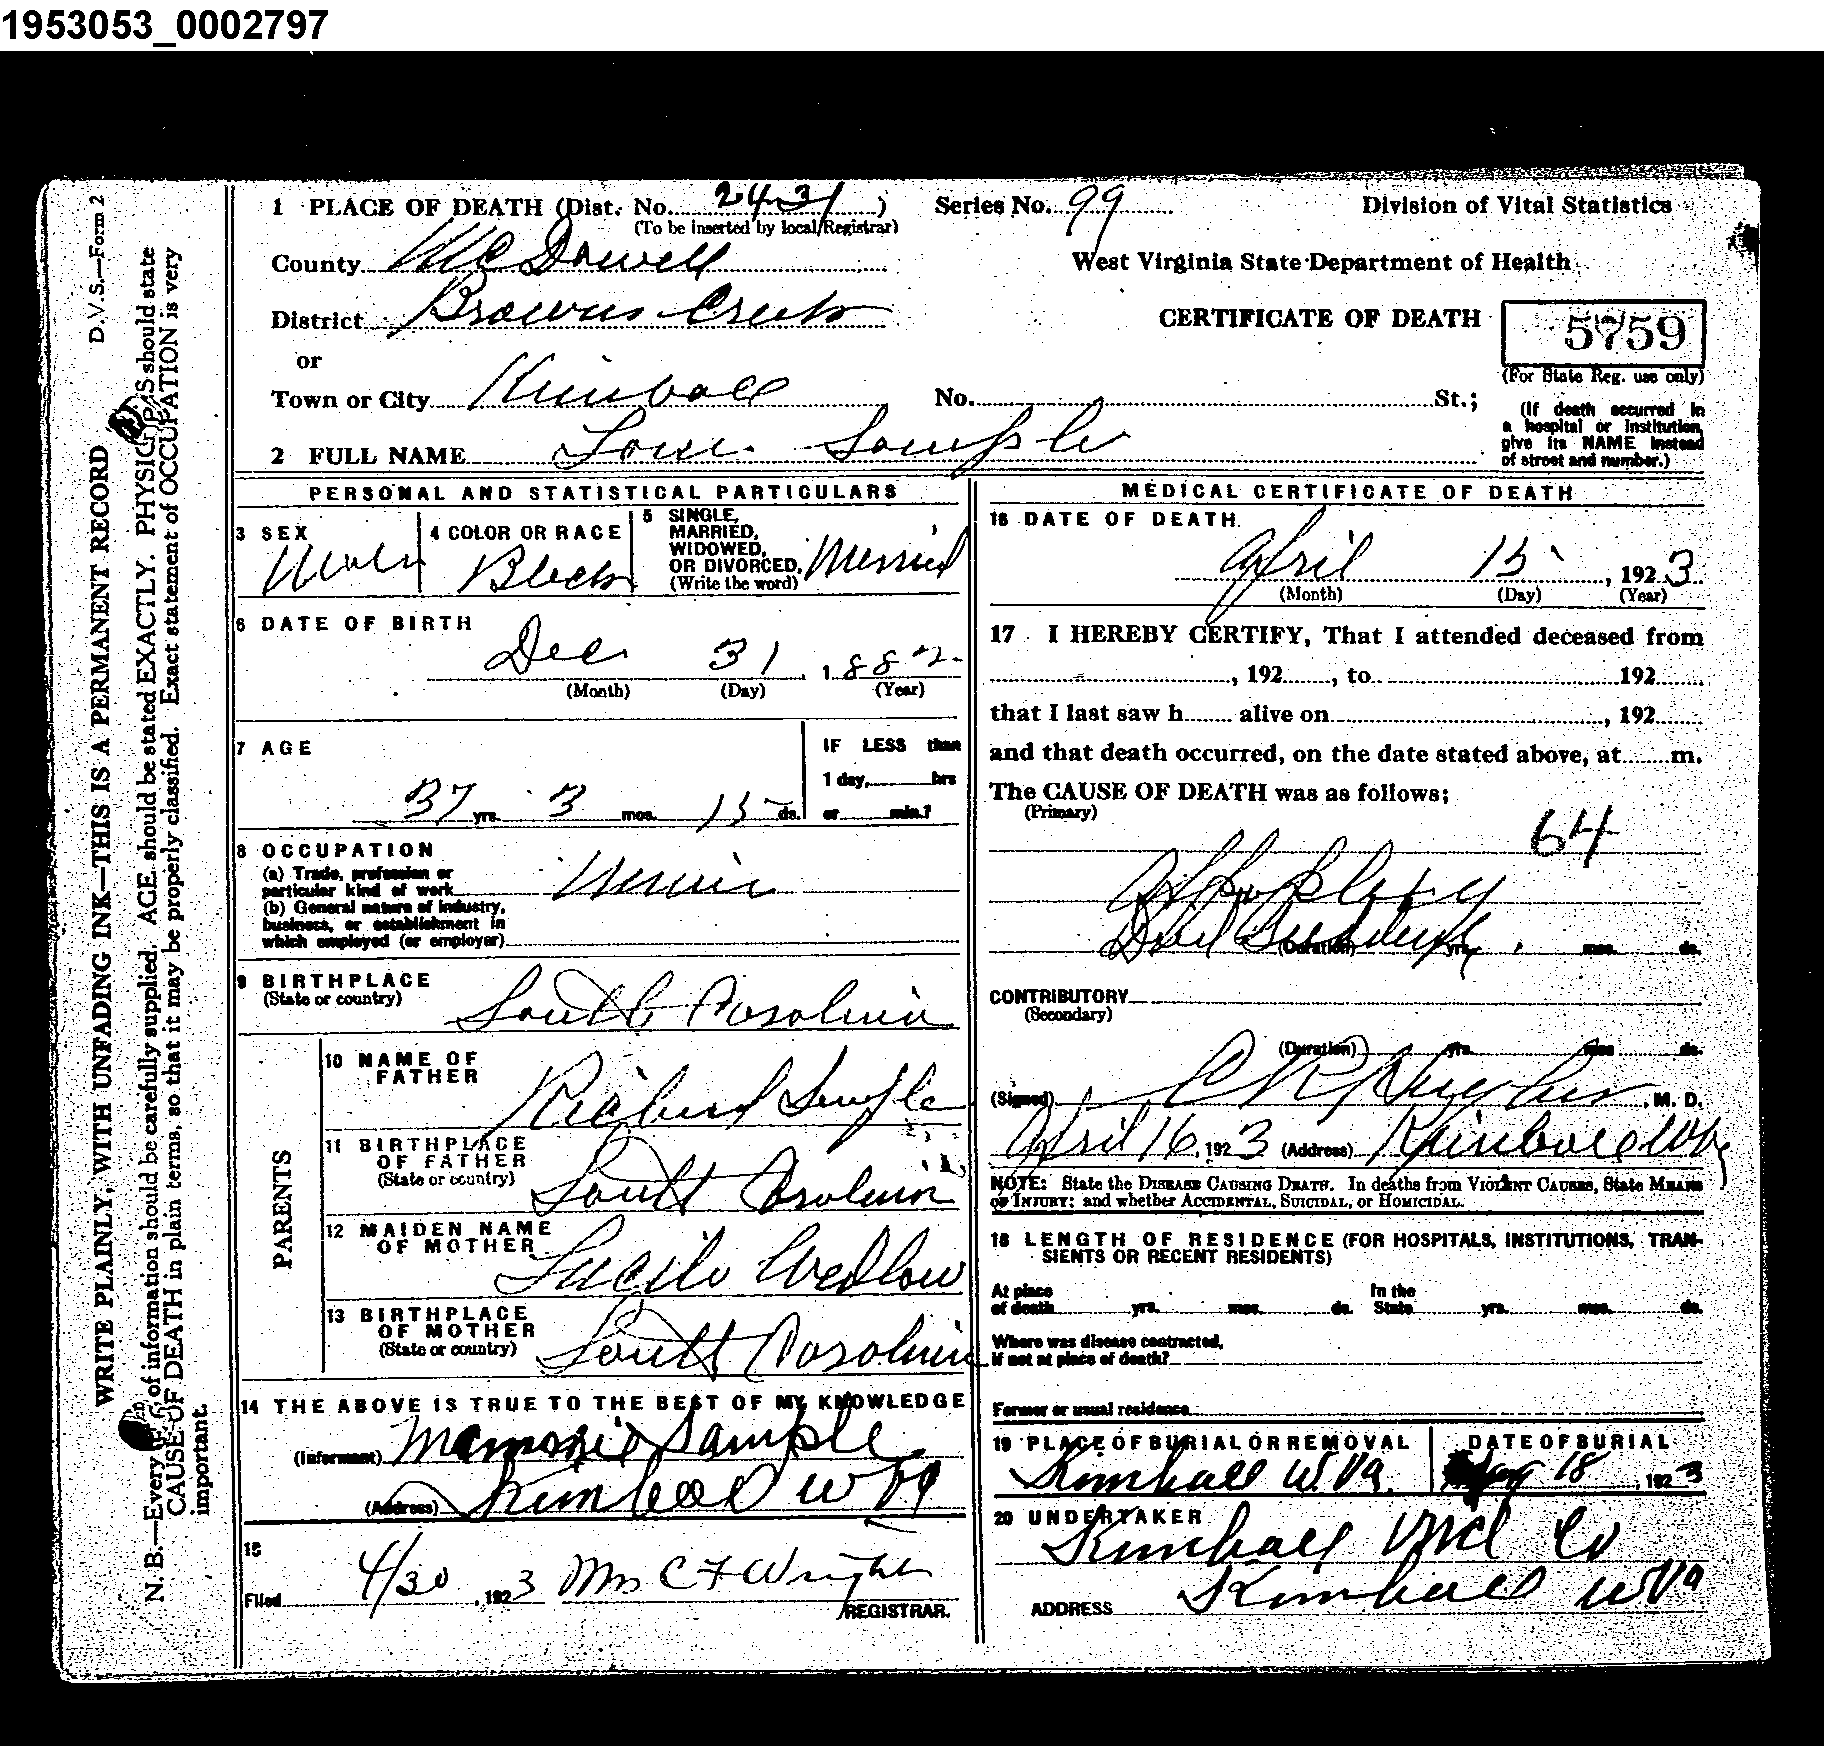 1953053_0002797
D.V.S.—Form 2
WRITE PLAINLY, WITH UNFADING INK—THIS IS A PERMANENT RECORD
N. B.—Every of information should be carefully supplied. AGE should be stated EXACTLY. PHYSICIANS should state
CAUSE OF DEATH in plain terms, so that it may be properly classified. Exact statement of OCCUPATION is very
important.
1 PLACE OF DEATH (Dist. No. 2431 ) Series No. 99 Division of Vital Statistics
(To be inserted by local Registrar)
County McDowell West Virginia State Department of Health
District Browns Creek CERTIFICATE OF DEATH 5759
or (For State Reg. use only)
Town or City Kimball No. St.;
(If death occurred in
a hospital or institution,
give its NAME instead
of street and number.)
2 FULL NAME Sample
PERSONAL AND STATISTICAL PARTICULARS
3 SEX Male
4 COLOR OR RACE Black
5 SINGLE,
MARRIED,
WIDOWED,
OR DIVORCED,
(Write the word) Married
6 DATE OF BIRTH
Dec 31 , 1882
(Month) (Day) (Year)
7 AGE
37 yrs. 3 mos. 15 ds.
IF LESS than
1 day, hrs
or min.?
8 OCCUPATION
(a) Trade, profession or
particular kind of work
(b) General nature of industry,
business, or establishment in
which employed (or employer)
9 BIRTHPLACE
(State or country) South Carolina
PARENTS
10 NAME OF
FATHER Richard Sample
11 BIRTHPLACE
OF FATHER
(State or country) South Carolina
12 MAIDEN NAME
OF MOTHER Lucile Wedlow
13 BIRTHPLACE
OF MOTHER
(State or country) South Carolina
14 THE ABOVE IS TRUE TO THE BEST OF MY KNOWLEDGE
(Informant) Sample
(Address) Kimball W Va
15
Filed 4/30 , 1923 Mrs C F Wright
REGISTRAR.
MEDICAL CERTIFICATE OF DEATH
16 DATE OF DEATH
April 15 , 1923
(Month) (Day) (Year)
17 I HEREBY CERTIFY, That I attended deceased from
, 192 , to 192
that I last saw h alive on , 192
and that death occurred, on the date stated above, at m.
The CAUSE OF DEATH was as follows;
(Primary)
64
Apoplexy
Died Suddenly
(Duration) yrs. mos. ds.
CONTRIBUTORY
(Secondary)
(Duration) yrs. mos. ds.
(Signed) C R Hughes , M. D.
April 16, 1923 (Address) Kimball W Va
NOTE: State the DISEASE CAUSING DEATH. In deaths from VIOLENT CAUSES, State MEANS
OF INJURY; and whether ACCIDENTAL, SUICIDAL, or HOMICIDAL.
18 LENGTH OF RESIDENCE (FOR HOSPITALS, INSTITUTIONS, TRAN-
SIENTS OR RECENT RESIDENTS)
At place In the
of death yrs. mos. ds. State yrs. mos. ds.
Where was disease contracted,
if not at place of death?
Former or usual residence
19 PLACE OF BURIAL OR REMOVAL
Kimball W. Va.
DATE OF BURIAL
18 , 1923
20 UNDERTAKER
Kimball Und Co
ADDRESS Kimball W Va